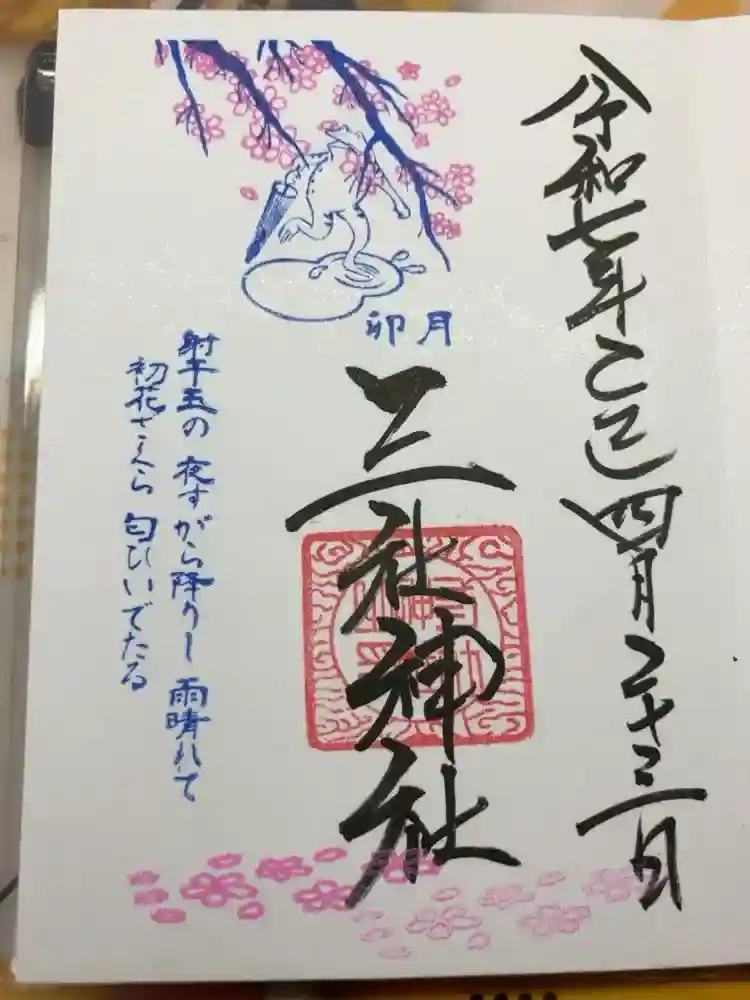 令和七年乙巳四月二十三日
卯月
三社神社
射干玉の 夜すがら降りし 雨晴れて
初花ざくら 匂ひいでたる